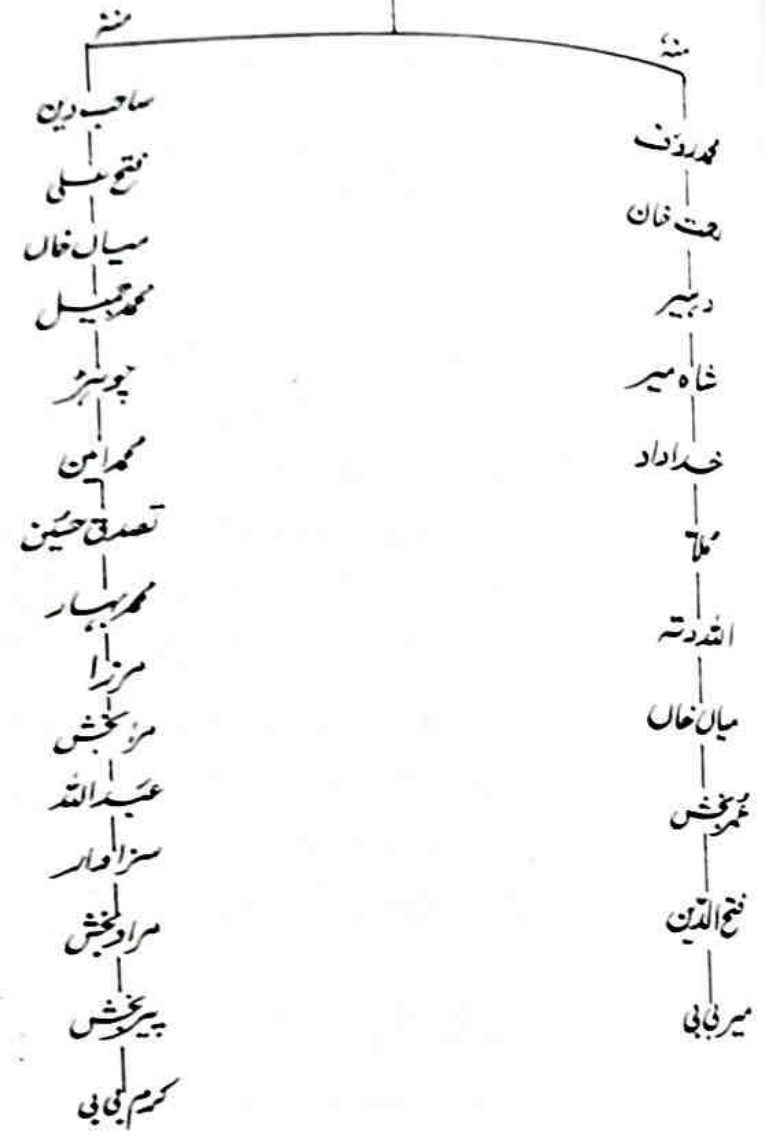 محمد رؤف
رحمت خان
شاہ میر
خداداد
مُلّا
اللہ دتہ
میاں خاں
عُمر بخش
فتح الدّین
میر بی بی
صاحب دین
فتح علی
میاں خاں
محمد جمیل
چوہڑ
محمد امن
تصدق حسُین
محمد بہار
مرزا
عبداللہ
سزاوار
مراد بخش
پیر بخش
کرم بی بی